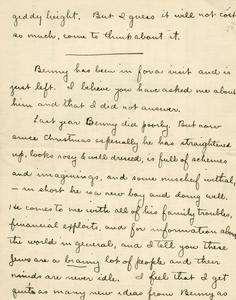 giddy height. But I guess it will not cost
so much, come to think about it.
Benny has been in for a visit and is
just left. I believe you have asked me about
him and that I did not answer.
Last year Benny did poorly. But now
since Christmas especially he has straightened
up, looks rosy & well dressed, is full of schemes
and imaginings, and some mischief withal,
– in short he is a new boy and doing well.
He comes to me with all of his family troubles,
financial exploits, and for information about
the world in general, and I tell you these
Jews are a brainy lot of people and their
minds are never idle. I feel that I get
quite as many new ideas from Benny as